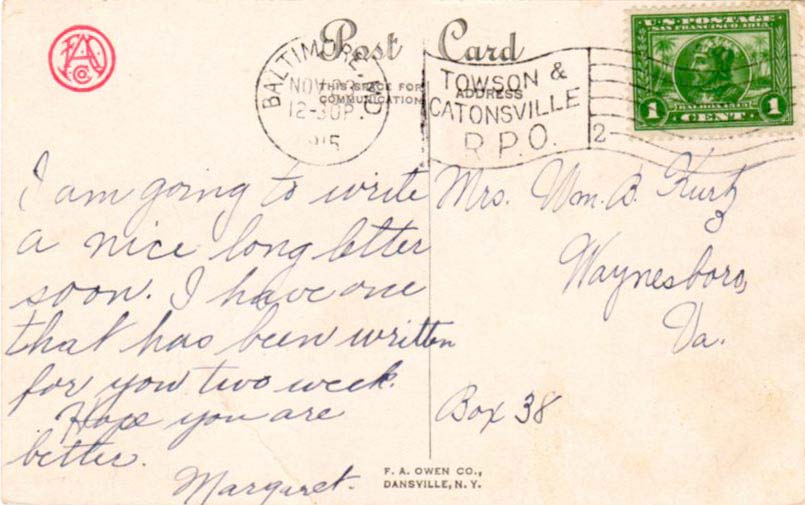 Post Card
THIS SPACE FOR
COMMUNICATION
ADDRESS
BALTIMORE, MD.
NOV
12-30P
1915
TOWSON &
CATONSVILLE
R.P.O.
2
U.S. POSTAGE
SAN FRANCISCO, 1915
BALBOA 1513
1 CENT 1
I am going to write
a nice long letter
soon. I have one
that has been written
for you two week.
Hope you are
better.
Margaret.
Mrs. Wm. B. Kurtz
Waynesboro,
Va.
Box 38
F. A. OWEN CO.,
DANSVILLE, N. Y.